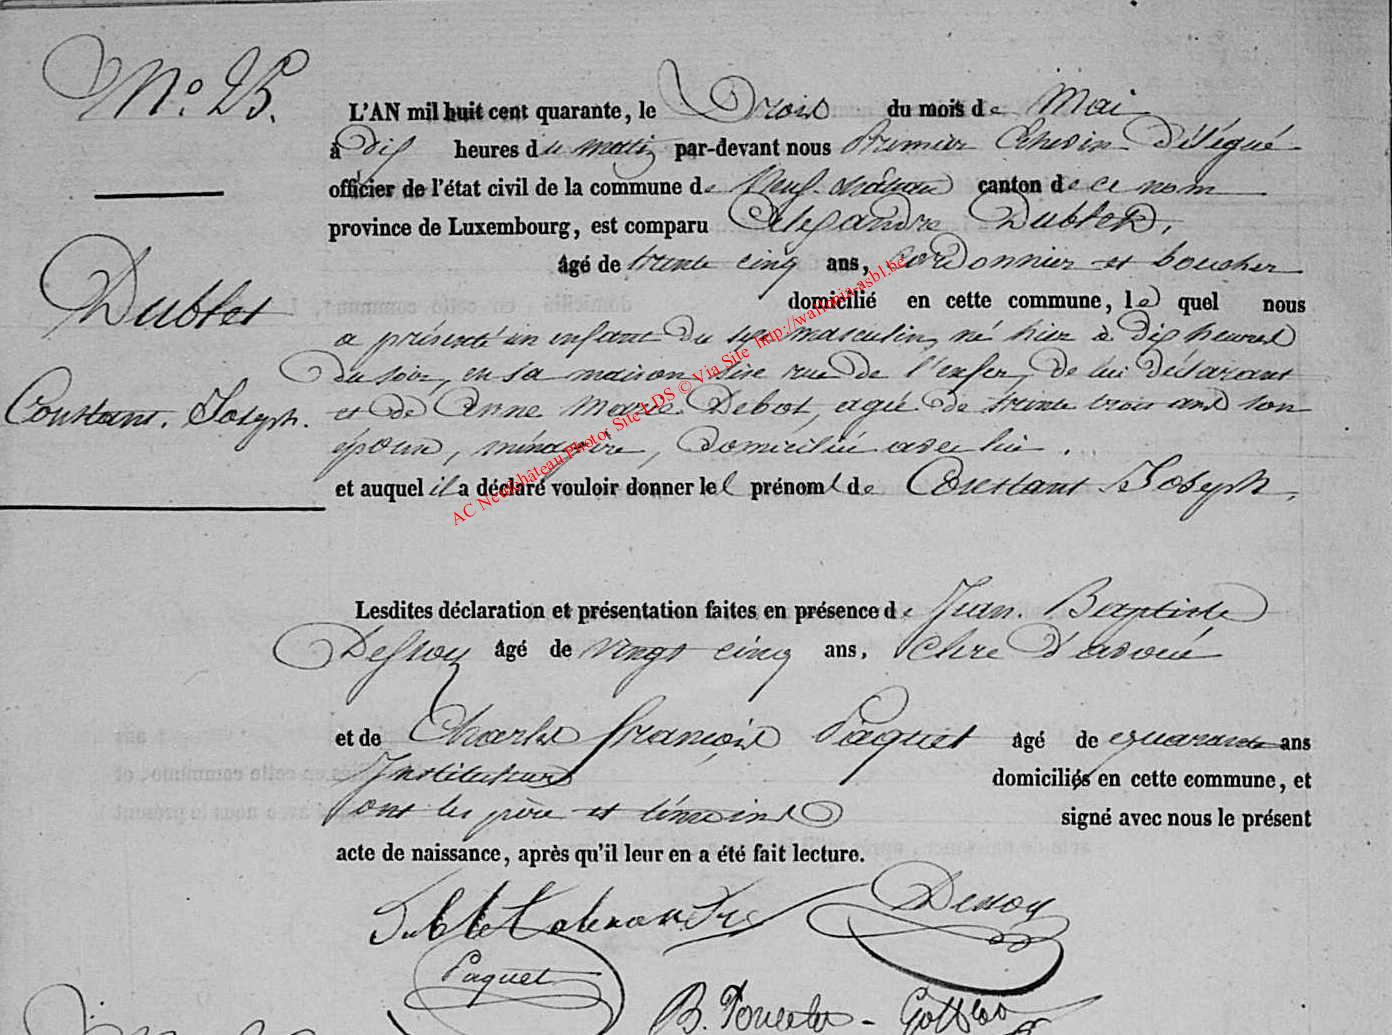 N.° 25.
Dublet
Constant. Joseph.
L'AN mil huit cent quarante, le Trois du mois de Mai
à dix heures du matin par-devant nous Premier Echevin Délégué
officier de l'état civil de la commune de Neuf-château canton de ce nom
province de Luxembourg, est comparu Alexandre Dublet,
âgé de trente cinq ans, cordonnier et boucher
domicilié en cette commune, lequel nous
a présenté un enfant du sexe masculin, né hier à dix heures
du soir, en sa maison sise rue de l'enfer, de lui déclarant
et de Anne Marie Debot, agée de trente trois ans son
épouse, ménagère, domiciliée avec lui.
et auquel il a déclaré vouloir donner les prénoms de Constant Joseph,
Lesdites déclaration et présentation faites en présence de Jean. Baptiste
Dessoy âgé de vingt cinq ans, clerc d'avoué
et de Charles François Paquet âgé de quarante ans
Instituteur domiciliés en cette commune, et
ont les père et témoins signé avec nous le présent
acte de naissance, après qu'il leur en a été fait lecture.
Dublet alexandre Dessoy
Paquet
B. Poncelet
AC Neufchâteau Photo: Site LDS © Via Site http://wallonia-asbl.be